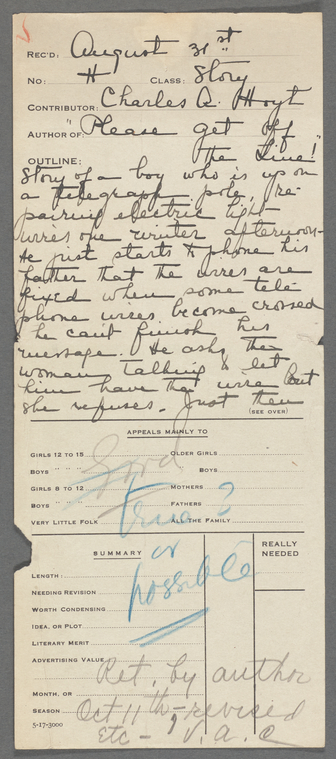 REC'D: August 31st
NO: H CLASS: Story
CONTRIBUTOR: Charles A. Hoyt
AUTHOR OF: "Please get off
the Line!"
OUTLINE:
Story of a boy who is up on
a telegraph pole, re-
pairing electric light
wires one winter afternoon-
He just starts to phone his
father that the wires are
fixed when some tele
phone wires become crossed
& he can't finish his
message. He asks the
woman talking to let
him have the wire but
she refuses. Just then
(SEE OVER)
APPEALS MAINLY TO
GIRLS 12 TO 15 OLDER GIRLS
BOYS " " " BOYS
GIRLS 8 TO 12 MOTHERS
BOYS " " " FATHERS
VERY LITTLE FOLK ALL THE FAMILY
Good
True?
or
possible
SUMMARY
REALLY NEEDED
LENGTH:
NEEDING REVISION
WORTH CONDENSING
IDEA, OR PLOT
LITERARY MERIT
ADVERTISING VALUE
Ret. by author
MONTH, OR
SEASON Oct 11th, - revised
5-17-3000
Etc - V.A.C